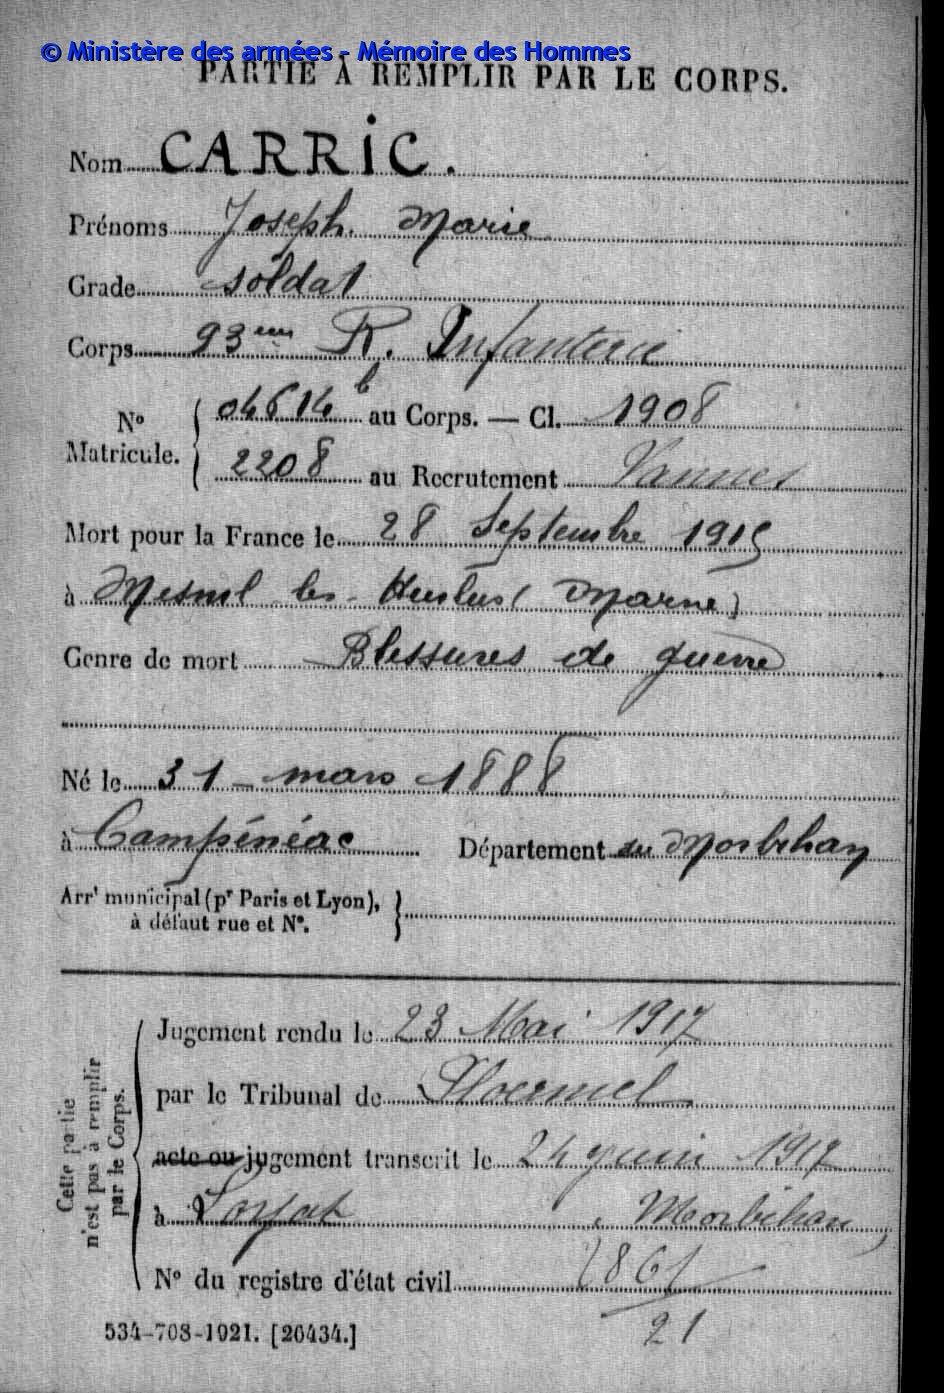 © Ministère des armées - Mémoire des Hommes
PARTIE À REMPLIR PAR LE CORPS.
Nom CARRIC.
Prénoms Joseph. Marie
Grade soldat
Corps 93ème R. Infanterie
No Matricule. { 04614 b au Corps. — Cl. 1908
2208 au Recrutement Vannes
Mort pour la France le 28 Septembre 1915
à Mesnil les Hurlus (Marne)
Genre de mort Blessures de guerre
Né le 31 - mars 1888
à Campénéac Département du Morbihan
Arrt municipal (pr Paris et Lyon),
à défaut rue et No.
Cette partie n'est pas à remplir par le Corps.
Jugement rendu le 23 Mai 1917
par le Tribunal de Ploermel
acte ou jugement transcrit le 24 juin 1917
à Loyat Morbihan
No du registre d'état civil 1861
21
534-708-1921. [26434.]